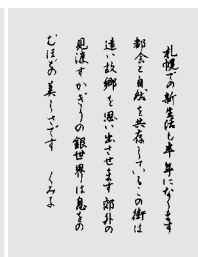 札幌での新生活も半年になります
都会と自然を共存しているこの街は
遠い故郷を思い出させます 郊外の
見渡すかぎりの銀世界は息をの
むほどの美しさです くみよ